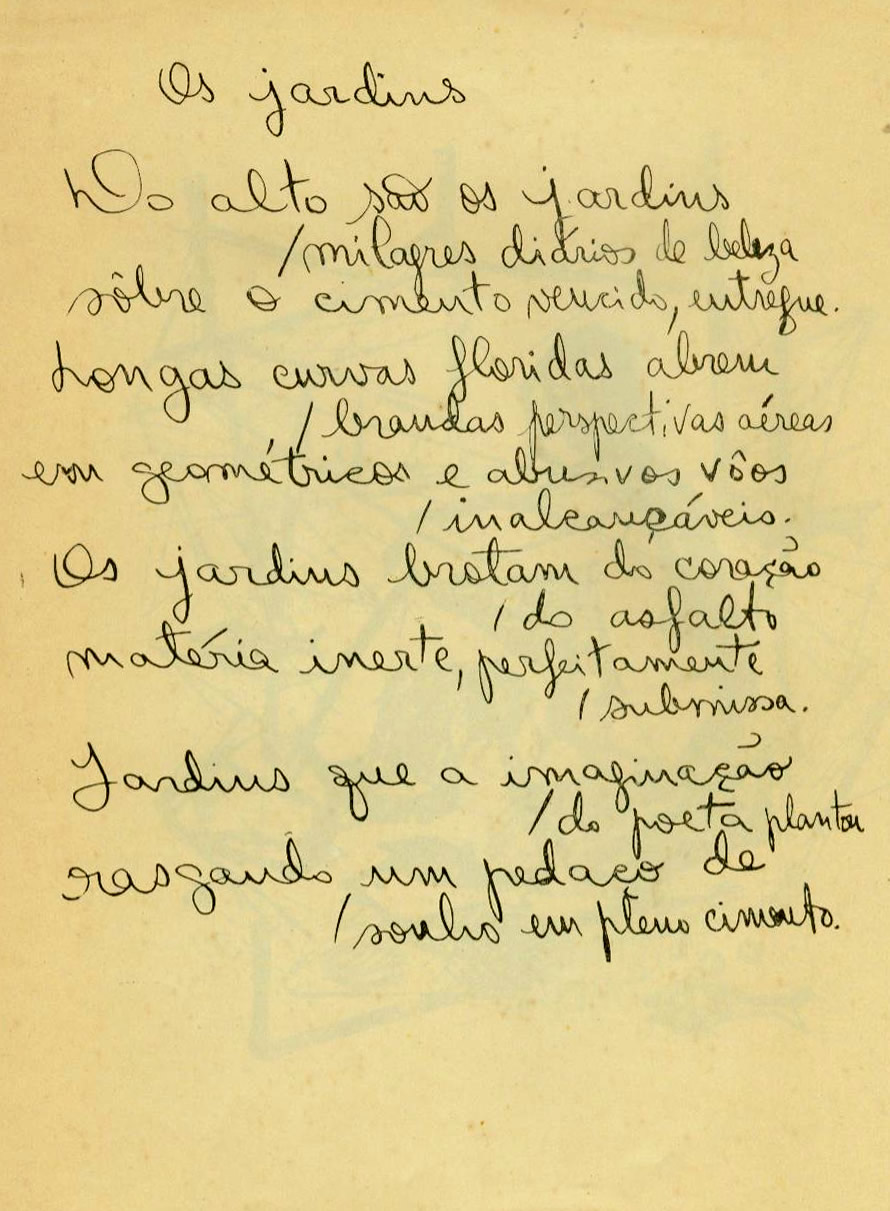 Os jardins
Do alto são os jardins
/milagres diários de beleza
sôbre o cimento vencido, entregue.
Longas curvas floridas abrem
/ brandas perspectivas aéreas
em geométricos e abusivos vôos
/ inalcançáveis.
Os jardins brotam do coração
/ do asfalto
matéria inerte, perfeitamente
/ submissa.
Jardins que a imaginação
/do poeta plantou
rasgando um pedaço de
/sonho em pleno cimento.